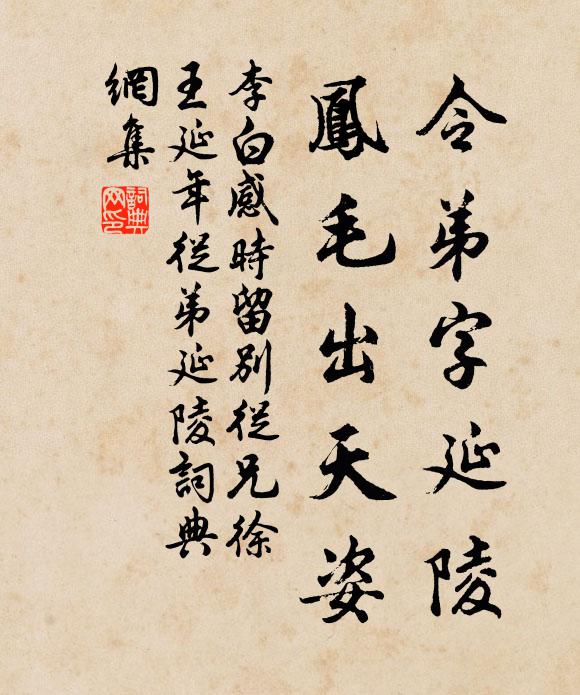 令弟字延陵
鳳毛出天姿
李白感時留別從兄徐
王延年從弟延陵詞典
網集
詞典網印